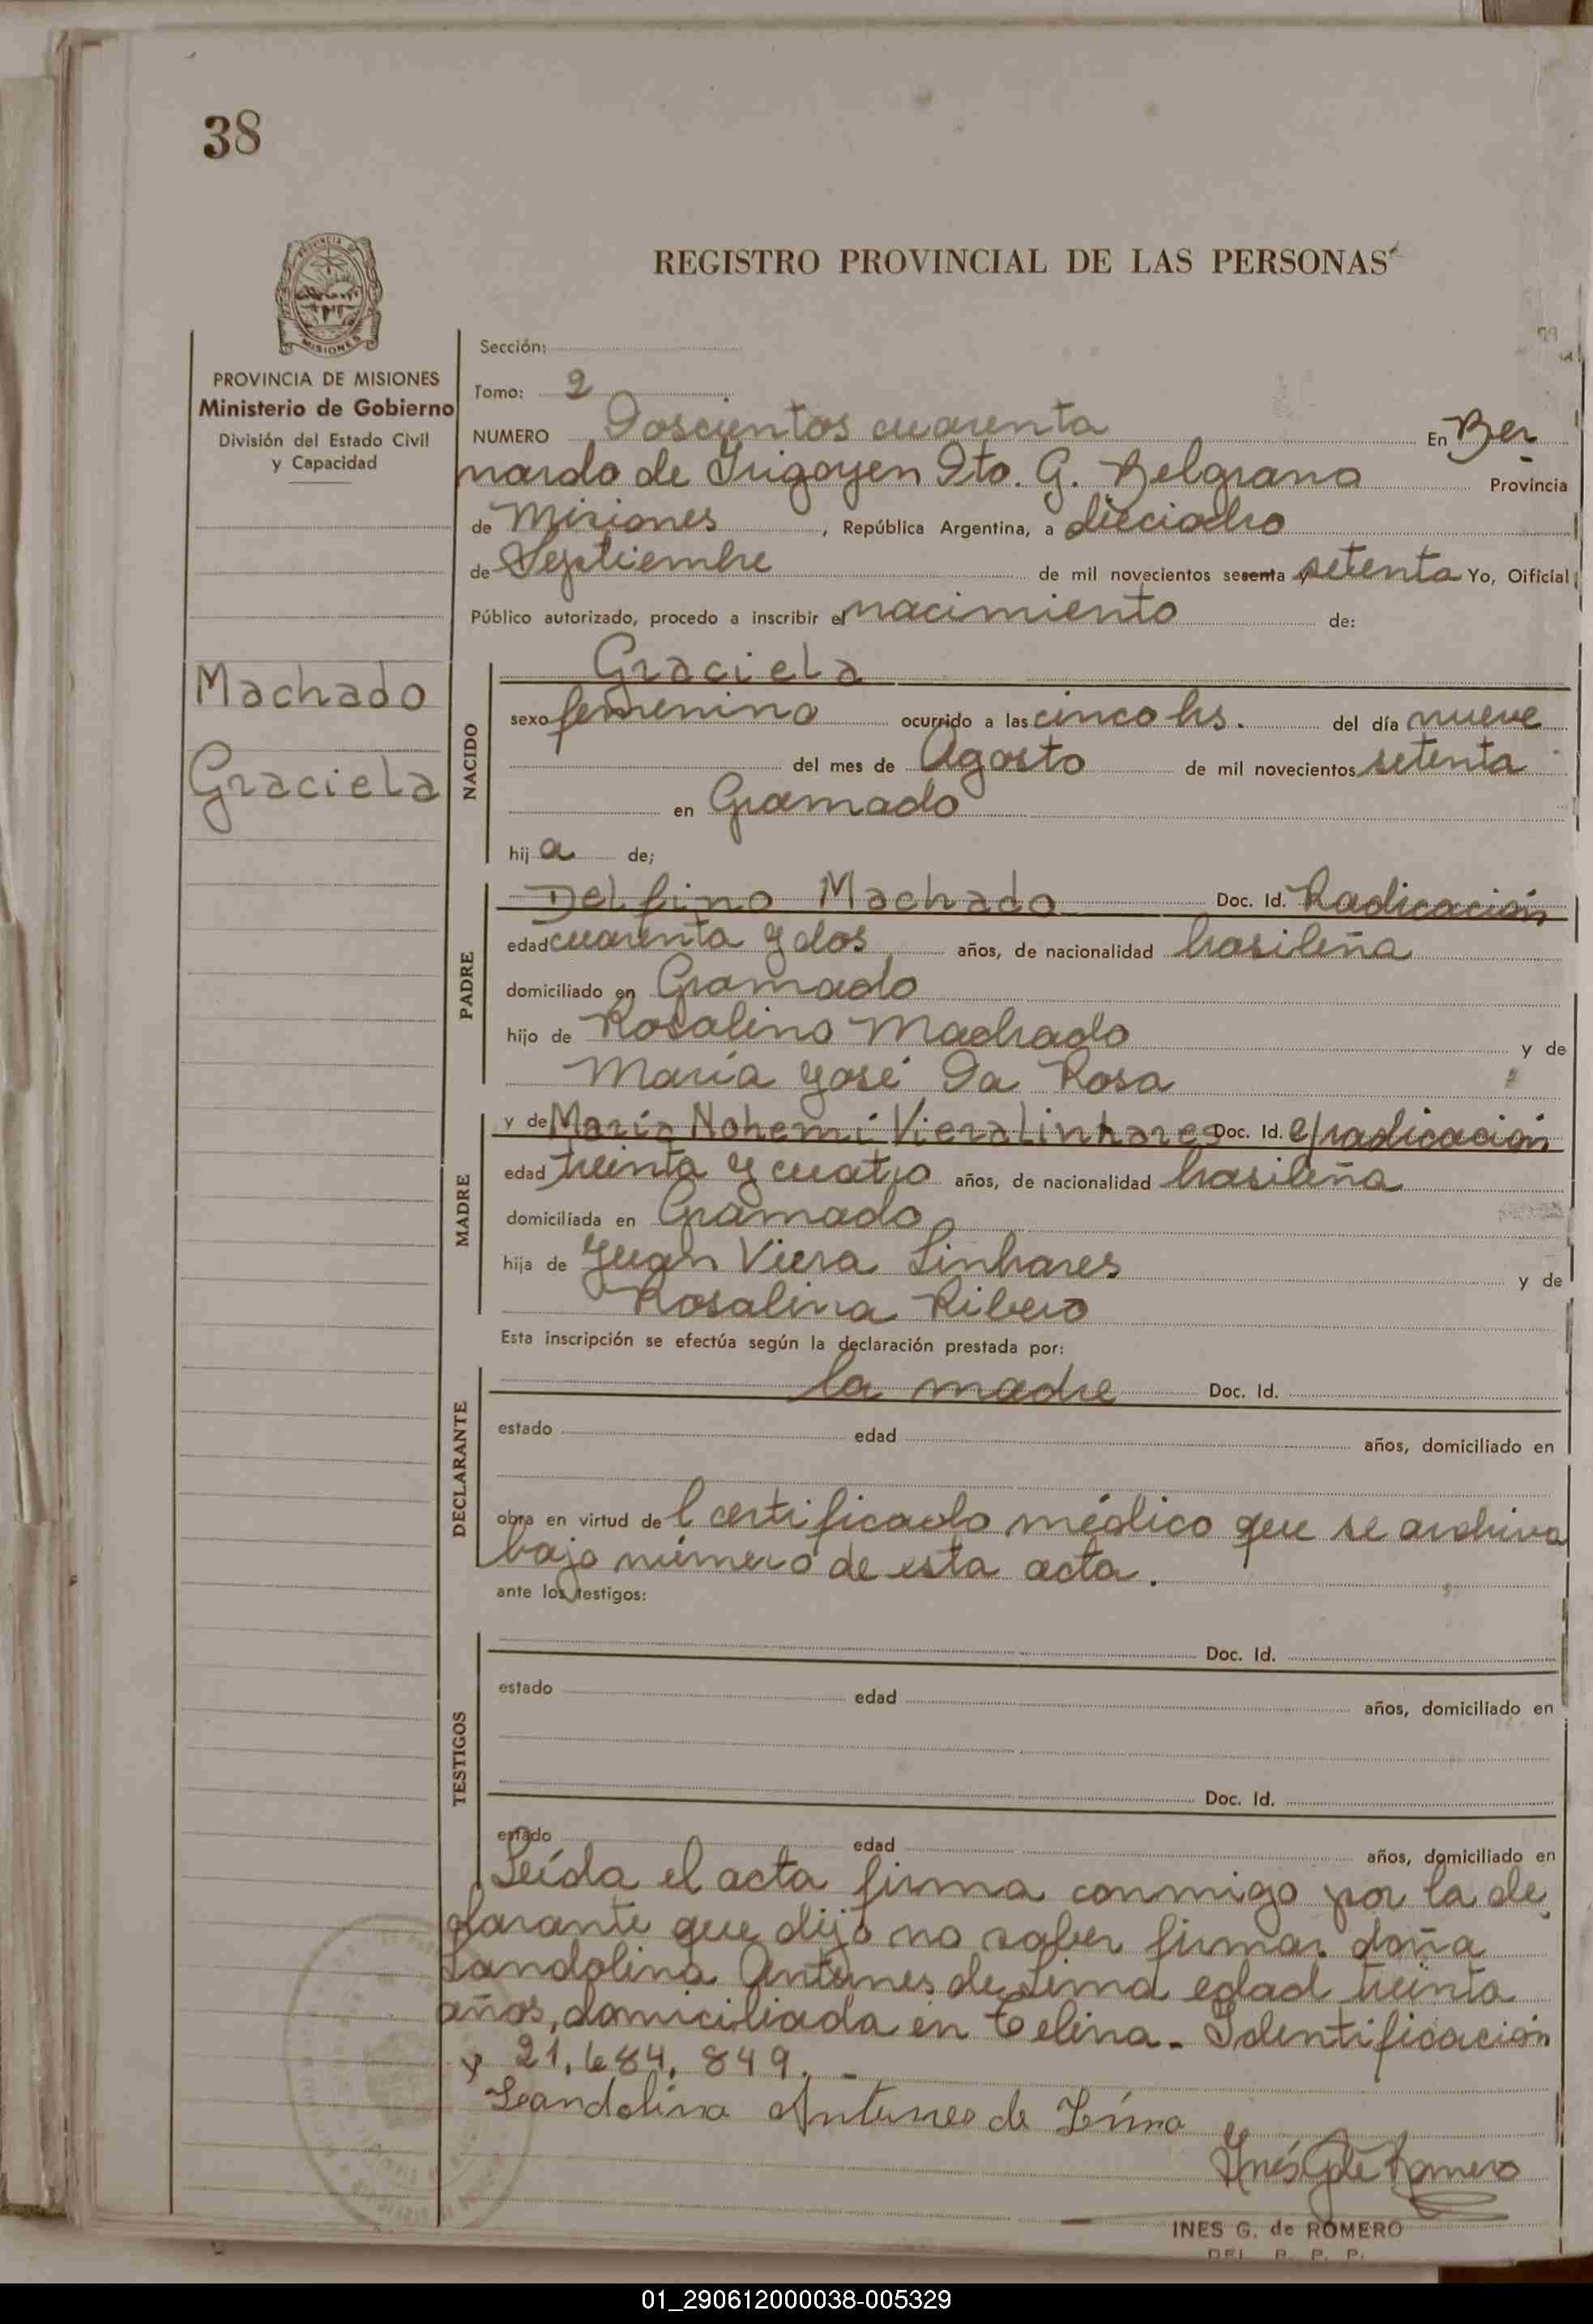 38
REGISTRO PROVINCIAL DE LAS PERSONAS
PROVINCIA DE MISIONES
Ministerio de Gobierno
División del Estado Civil
y Capacidad
Sección:
Tomo: 2
NUMERO Doscientos cuarenta En Ber
nardo de Irigoyen Dto. G. Belgrano Provincia
de Misiones , República Argentina, a dieciocho
de Septiembre de mil novecientos sesenta setenta Yo, Oificial
Público autorizado, procedo a inscribir el nacimiento de:
Machado
Graciela
NACIDO
Graciela
sexo femenino ocurrido a las cinco hs. del día nueve
del mes de Agosto de mil novecientos setenta
en Gramado
hij a de;
PADRE
Delfino Machado Doc. Id. Radicación
edad cuarenta y dos años, de nacionalidad brasileña
domiciliado en Gramado
hijo de Rosalino Machado y de
María José Da Rosa
MADRE
y de María Nohemí Viera Linhares Doc. Id. c/radicación
edad treinta y cuatro años, de nacionalidad brasileña
domiciliada en Gramado
hija de Juan Viera Linhares y de
Rosalina Ribero
Esta inscripción se efectúa según la declaración prestada por:
DECLARANTE
la madre Doc. Id.
estado edad años, domiciliado en
obra en virtud de l certificado médico que se archiva
bajo número de esta acta.
ante los testigos:
TESTIGOS
Doc. Id.
estado edad años, domiciliado en
Doc. Id.
estado edad años, domiciliado en
Leída el acta firma conmigo por la de
clarante que dijo no saber firmar doña
Landolina Antunes de Lima edad treinta
años, domiciliada en Celina. Identificación
21.684.849.
Landolina Antunes de Lima
Inés G de Romero
INES G. de ROMERO
DEL. R. P. P.
01_290612000038-005329